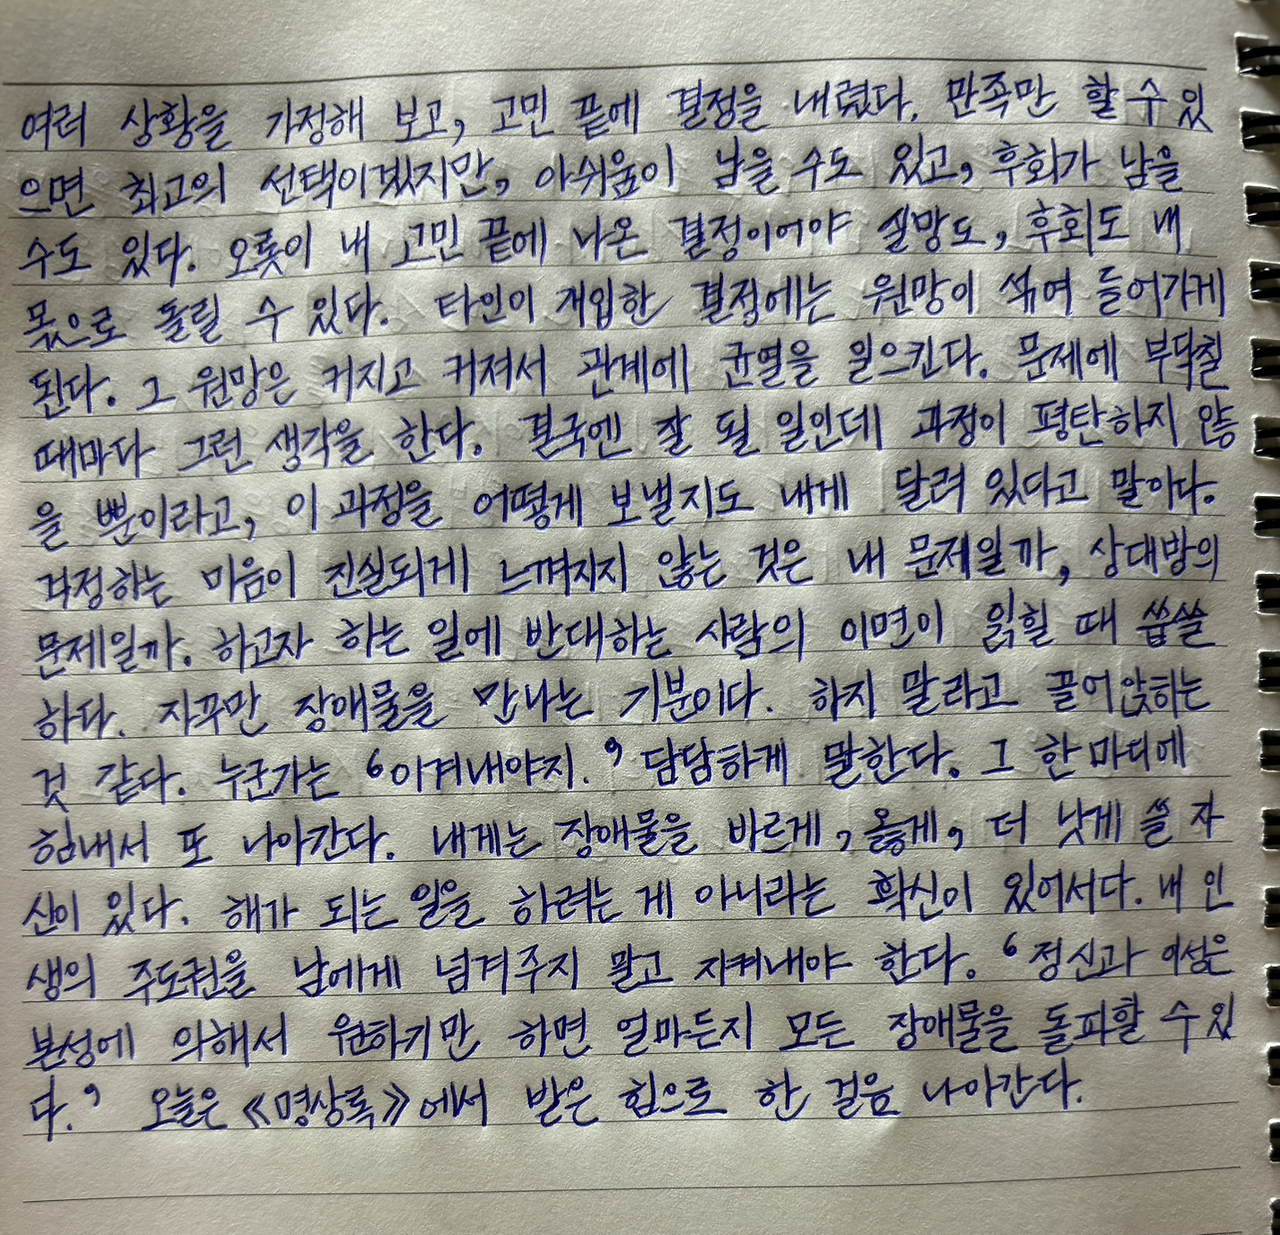 여러 상황을 가정해 보고, 고민 끝에 결정을 내렸다. 만족만 할 수 있
으면 최고의 선택이겠지만, 아쉬움이 남을 수도 있고, 후회가 남을
수도 있다. 오롯이 내 고민 끝에 나온 결정이어야 실망도, 후회도 내
몫으로 돌릴 수 있다. 타인이 개입한 결정에는 원망이 섞여 들어가게
된다. 그 원망은 커지고 커져서 관계에 균열을 일으킨다. 문제에 부닥칠
때마다 그런 생각을 한다. 결국엔 잘 될 일인데 과정이 평탄하지 않
을 뿐이라고, 이 과정을 어떻게 보낼지도 내게 달려 있다고 말이다.
걱정하는 마음이 진실되게 느껴지지 않는 것은 내 문제일까, 상대방의
문제일까. 하고자 하는 일에 반대하는 사람의 이면이 읽힐 때 씁쓸
하다. 자꾸만 장애물을 만나는 기분이다. 하지 말라고 끌어앉히는
것 같다. 누군가는 ‘이겨내야지.’ 담담하게 말한다. 그 한 마디에
힘내서 또 나아간다. 내게는 장애물을 바르게, 옳게, 더 낫게 쓸 자
신이 있다. 해가 되는 일을 하려는 게 아니라는 확신이 있어서다. 내 인
생의 주도권을 남에게 넘겨주지 말고 지켜내야 한다. ‘정신과 이성은
본성에 의해서 원하기만 하면 얼마든지 모든 장애물을 돌파할 수 있
다.’ 오늘은 《명상록》에서 받은 힘으로 한 걸음 나아간다.